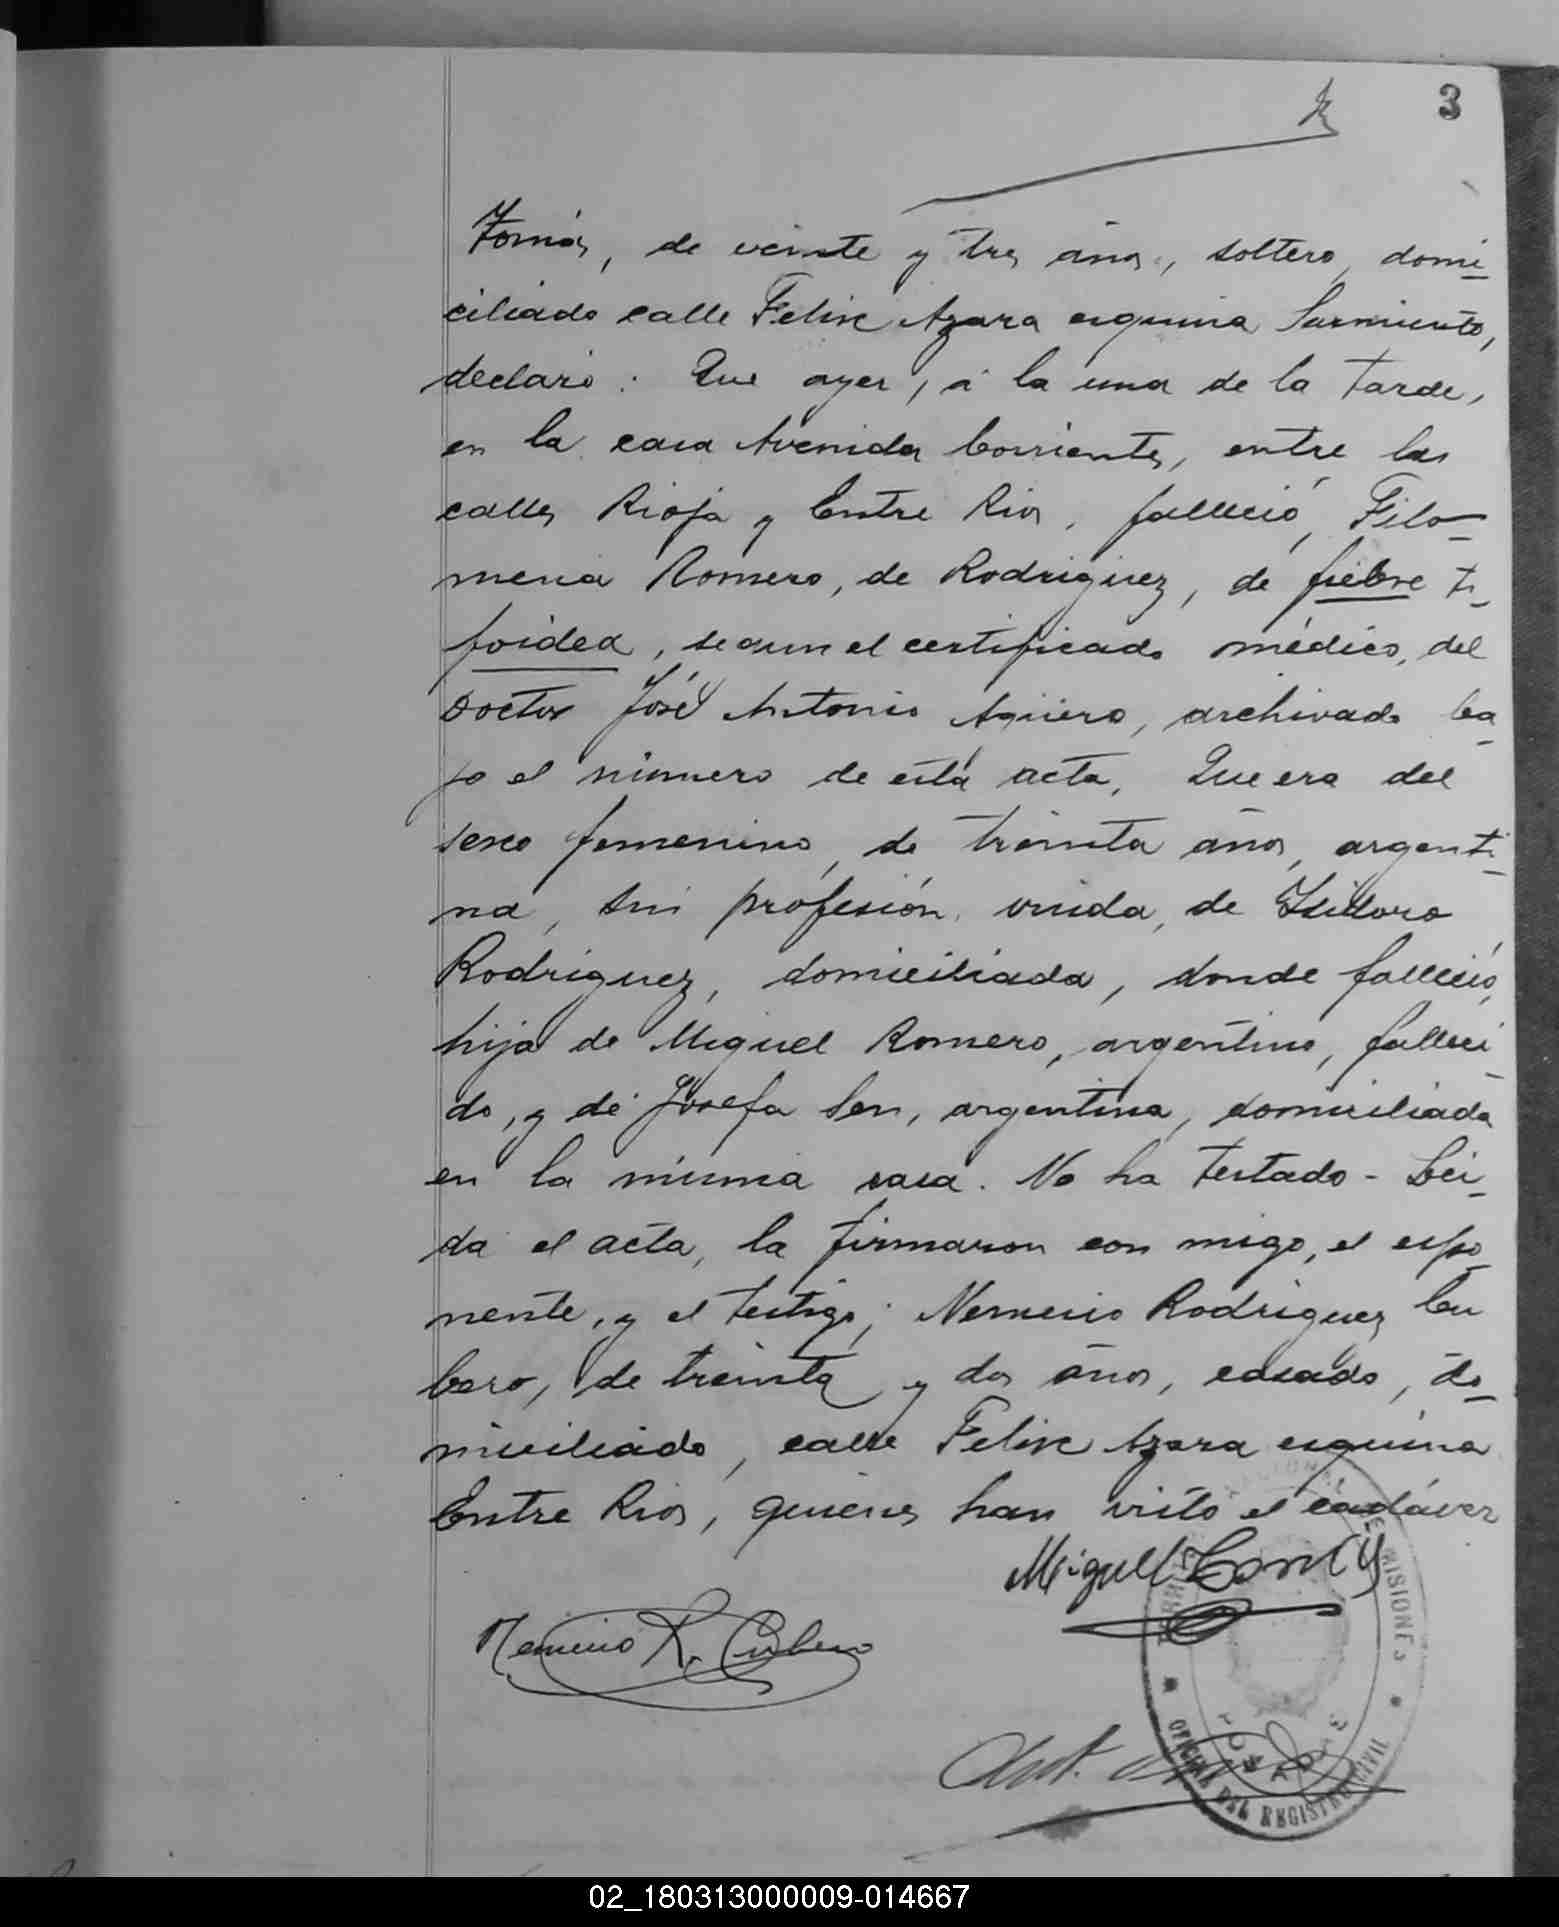 3
Tomás, de veinte y tres años, soltero, domi-
ciliado calle Felix Azara esquina Sarmiento,
declaró: Que ayer, á la una de la tarde,
en la casa Avenida Corrientes, entre las
calles Rioja y Entre Rios, falleció, Filo-
mena Romero, de Rodriguez, de fiebre ti-
foidea, segun el certificado médico, del
Doctor José Antonio Agüero, archivado ba-
jo el número de ésta acta, Que era del
sexo femenino, de treinta años, argenti-
na, sin profesión, viuda, de Isidoro
Rodriguez, domiciliada, donde falleció,
hija de Miguel Romero, argentino, falleci-
do, y de Josefa Sen, argentina, domiciliada
en la misma casa. No ha testado - Lei-
da el acta, la firmaron con migo, el expo-
nente, y el testigo; Nemecio Rodriguez Cu
bero, de treinta y dos años, casado, do-
miciliado, calle Felix Azara esquina
Entre Rios, quienes han visto el cadáver
Miguel
Nemecio R. Cubero
Ant.
NACIONAL DE MISIONES
POSADAS
OFICINA DEL REGISTRO CIVIL
02_180313000009-014667